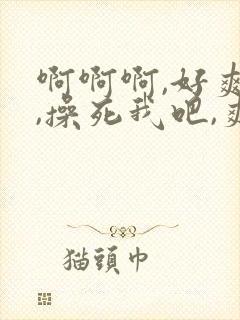 啊啊啊,好爽
,操死我吧,爽
猫頭巾